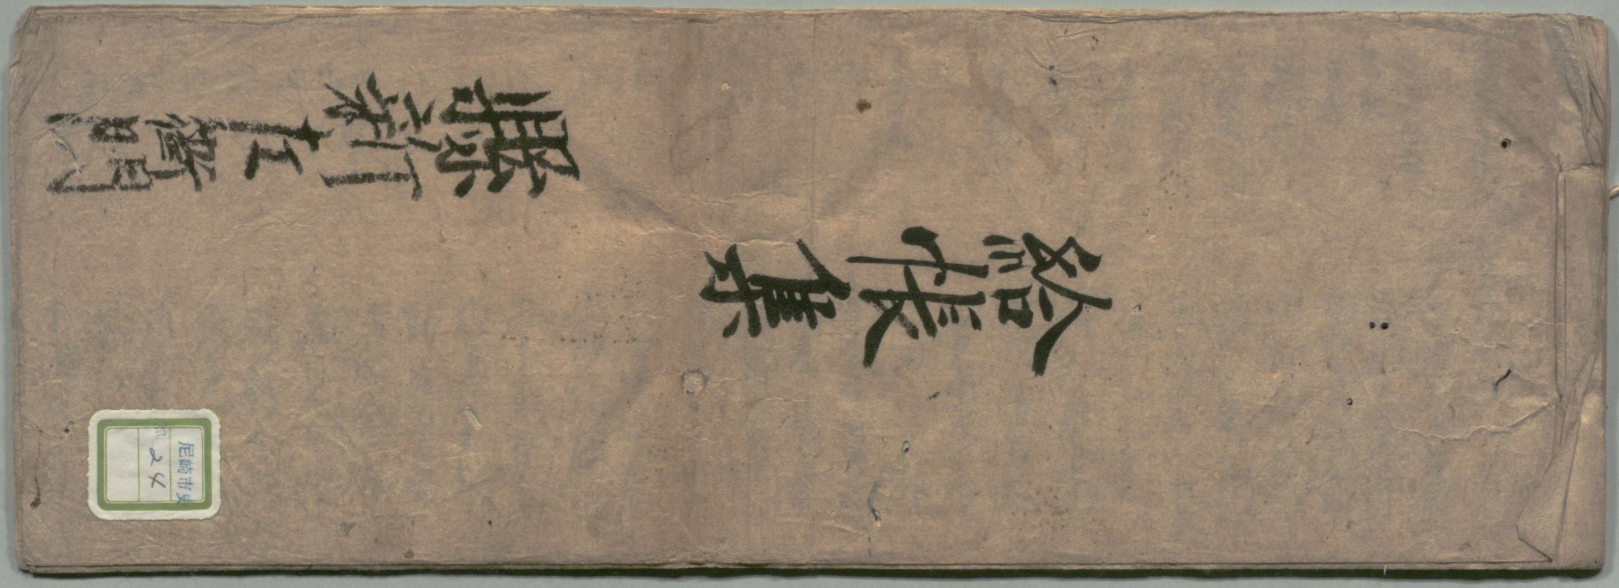 給帳集
縣新左衛門
尼崎市史
24